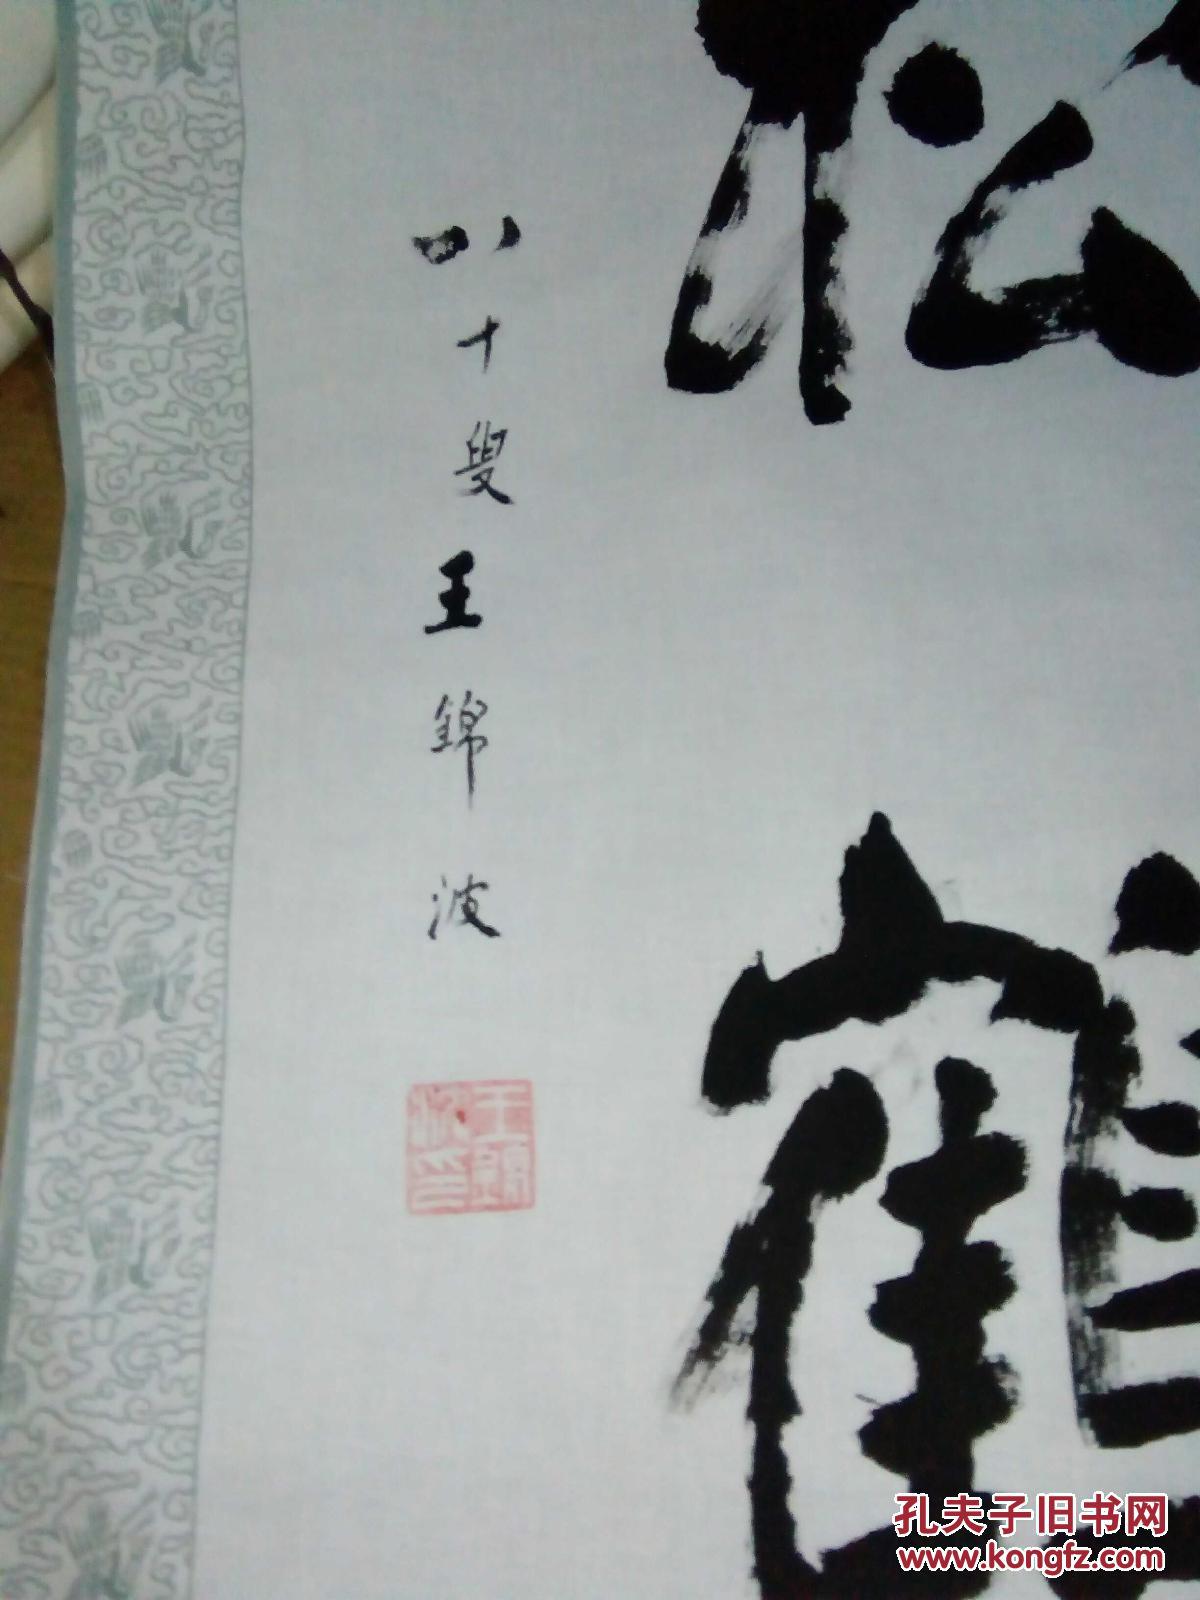 松
鶴
八十叟王錦波
王錦波印
孔夫子旧书网
www.kongfz.com